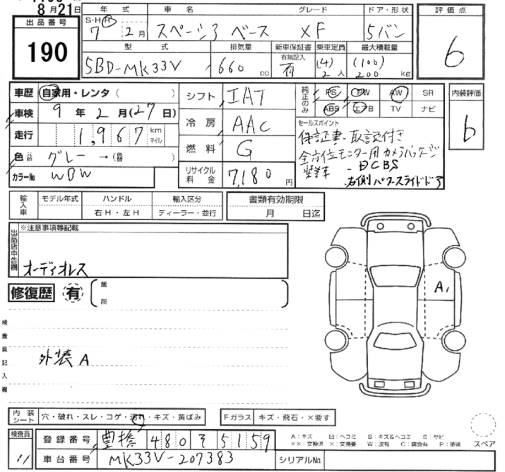 8月21日
出品番号
190
年式 車名 グレード ドア・形状
S・H・R 7年2月 スペーシア ベース XF 5バン
型式 排気量 新車保証書 乗車定員 最大積載量
5BD-MK33V 660cc 有無記入 有 (4) 2人 (100) 200kg
評価点
6
車歴 自家用・レンタ( )
車検 9年2月(27日)
走行 1,967 km マイル
色 グレー→(色替)
カラーNo WBW
シフト IAT
冷房 AAC
燃料 G
リサイクル料金 7,180円
純正のみ PS PW AW SR
ABS エアB TV ナビ
セールスポイント
保証書・取説付き
全方位モニター用カメラパッケージ
禁煙車 -DCBS
右側パワースライドドア
内装評価
6
輸入車 モデル年式 ハンドル 輸入区分
年 右H・左H ディーラー・並行
書類有効期限
月 日迄
出品店申告欄
※注意事項等記載
オーディオレス
修復歴 有 箇所
検査員記入欄
外装A
A1
内装シート 穴・破れ・スレ・コゲ・汚れ・キズ・黄ばみ
Fガラス キズ・飛石・×要す
スペア
検査員
登録番号 豊橋 480 う 5159
車台番号 MK33V-207383
シリアルNo.